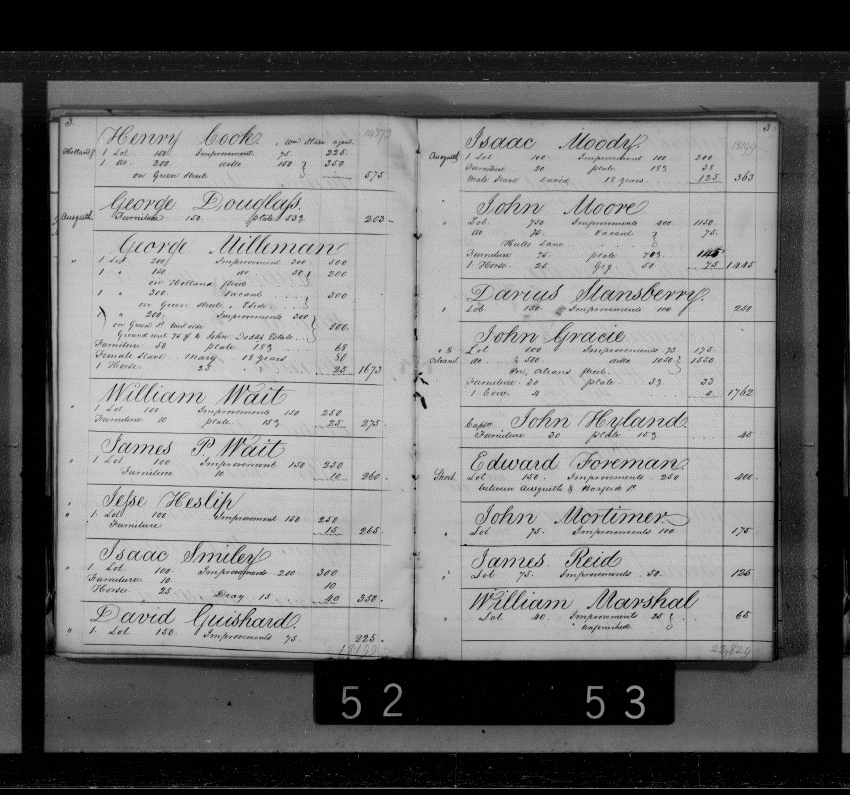 3.
14373
Henry Cook.
Holland St 1 Lot 150. Improvement 75 225.
1 do. 200. ditto 150 350
on Green Street 575.
George Douglass.
Ausquith Furniture 150. plate 53 203
George Milleman
" 1 Lot 200 Improvement 300 500
1 " 150 do 50 200
on Holland Street
1 " 300 Vacant 300
on Green Street, E side
" 200 Improvements 300
on Green St. East side 500.
Ground rent 75 John Dodds Estate
Furniture 50 plate 18 68
Female Slave Mary 18 years 80
1 Horse 25 25 1673
William Wait
" 1 Lot 100 Improvements 150 250
Furniture 10 plate. 15 25 275
James P. Wait
" 1 Lot 100 Improvement 150 250
Furniture 10 10 260
Jesse Heslip
" 1 Lot 100 Improvement 150 250
Furniture 15 265
Isaac Smiley
" 1 Lot 100. Improvements 200 300
Furniture 10. 10
Horse 25 Dray 15 40 350
David Guishard.
" 1. Lot 150. Improvements 75. 225
18199
3.
18199
Isaac Moody.
Ausquith 1 Lot 100. Improvement 100 200
Furniture 20 plate 18 38
Male Slave David 18 years 125 363
John Moore
" Lot 750 Improvements 400 1150.
do 75. Vacant 75.
Hulls Lane
Furniture 75. plate 70 145
1 Horse. 25 Gig. 50 75 1445
Darius Stansberry.
" Lot 150. Improvements 100 250
John Gracie
" & Lot 100 Improvements 75 175
Orleans do 500 ditto 1050 1550
On Orleans Street.
Furniture 30 plate. 3 33
1 Cow 4 4 1762
Capn John Hyland.
Furniture 30 plate 15 45
Edward Foreman.
Short Lot 150. Improvements 250 400
between Ausquith & Harford St
John Mortimer
" Lot 75. Improvements 100 175
James Reid
" Lot 75. Improvements 50. 125
William Marshal
" Lot 40. Improvements 25 65
unfinished.
22,829
52 53